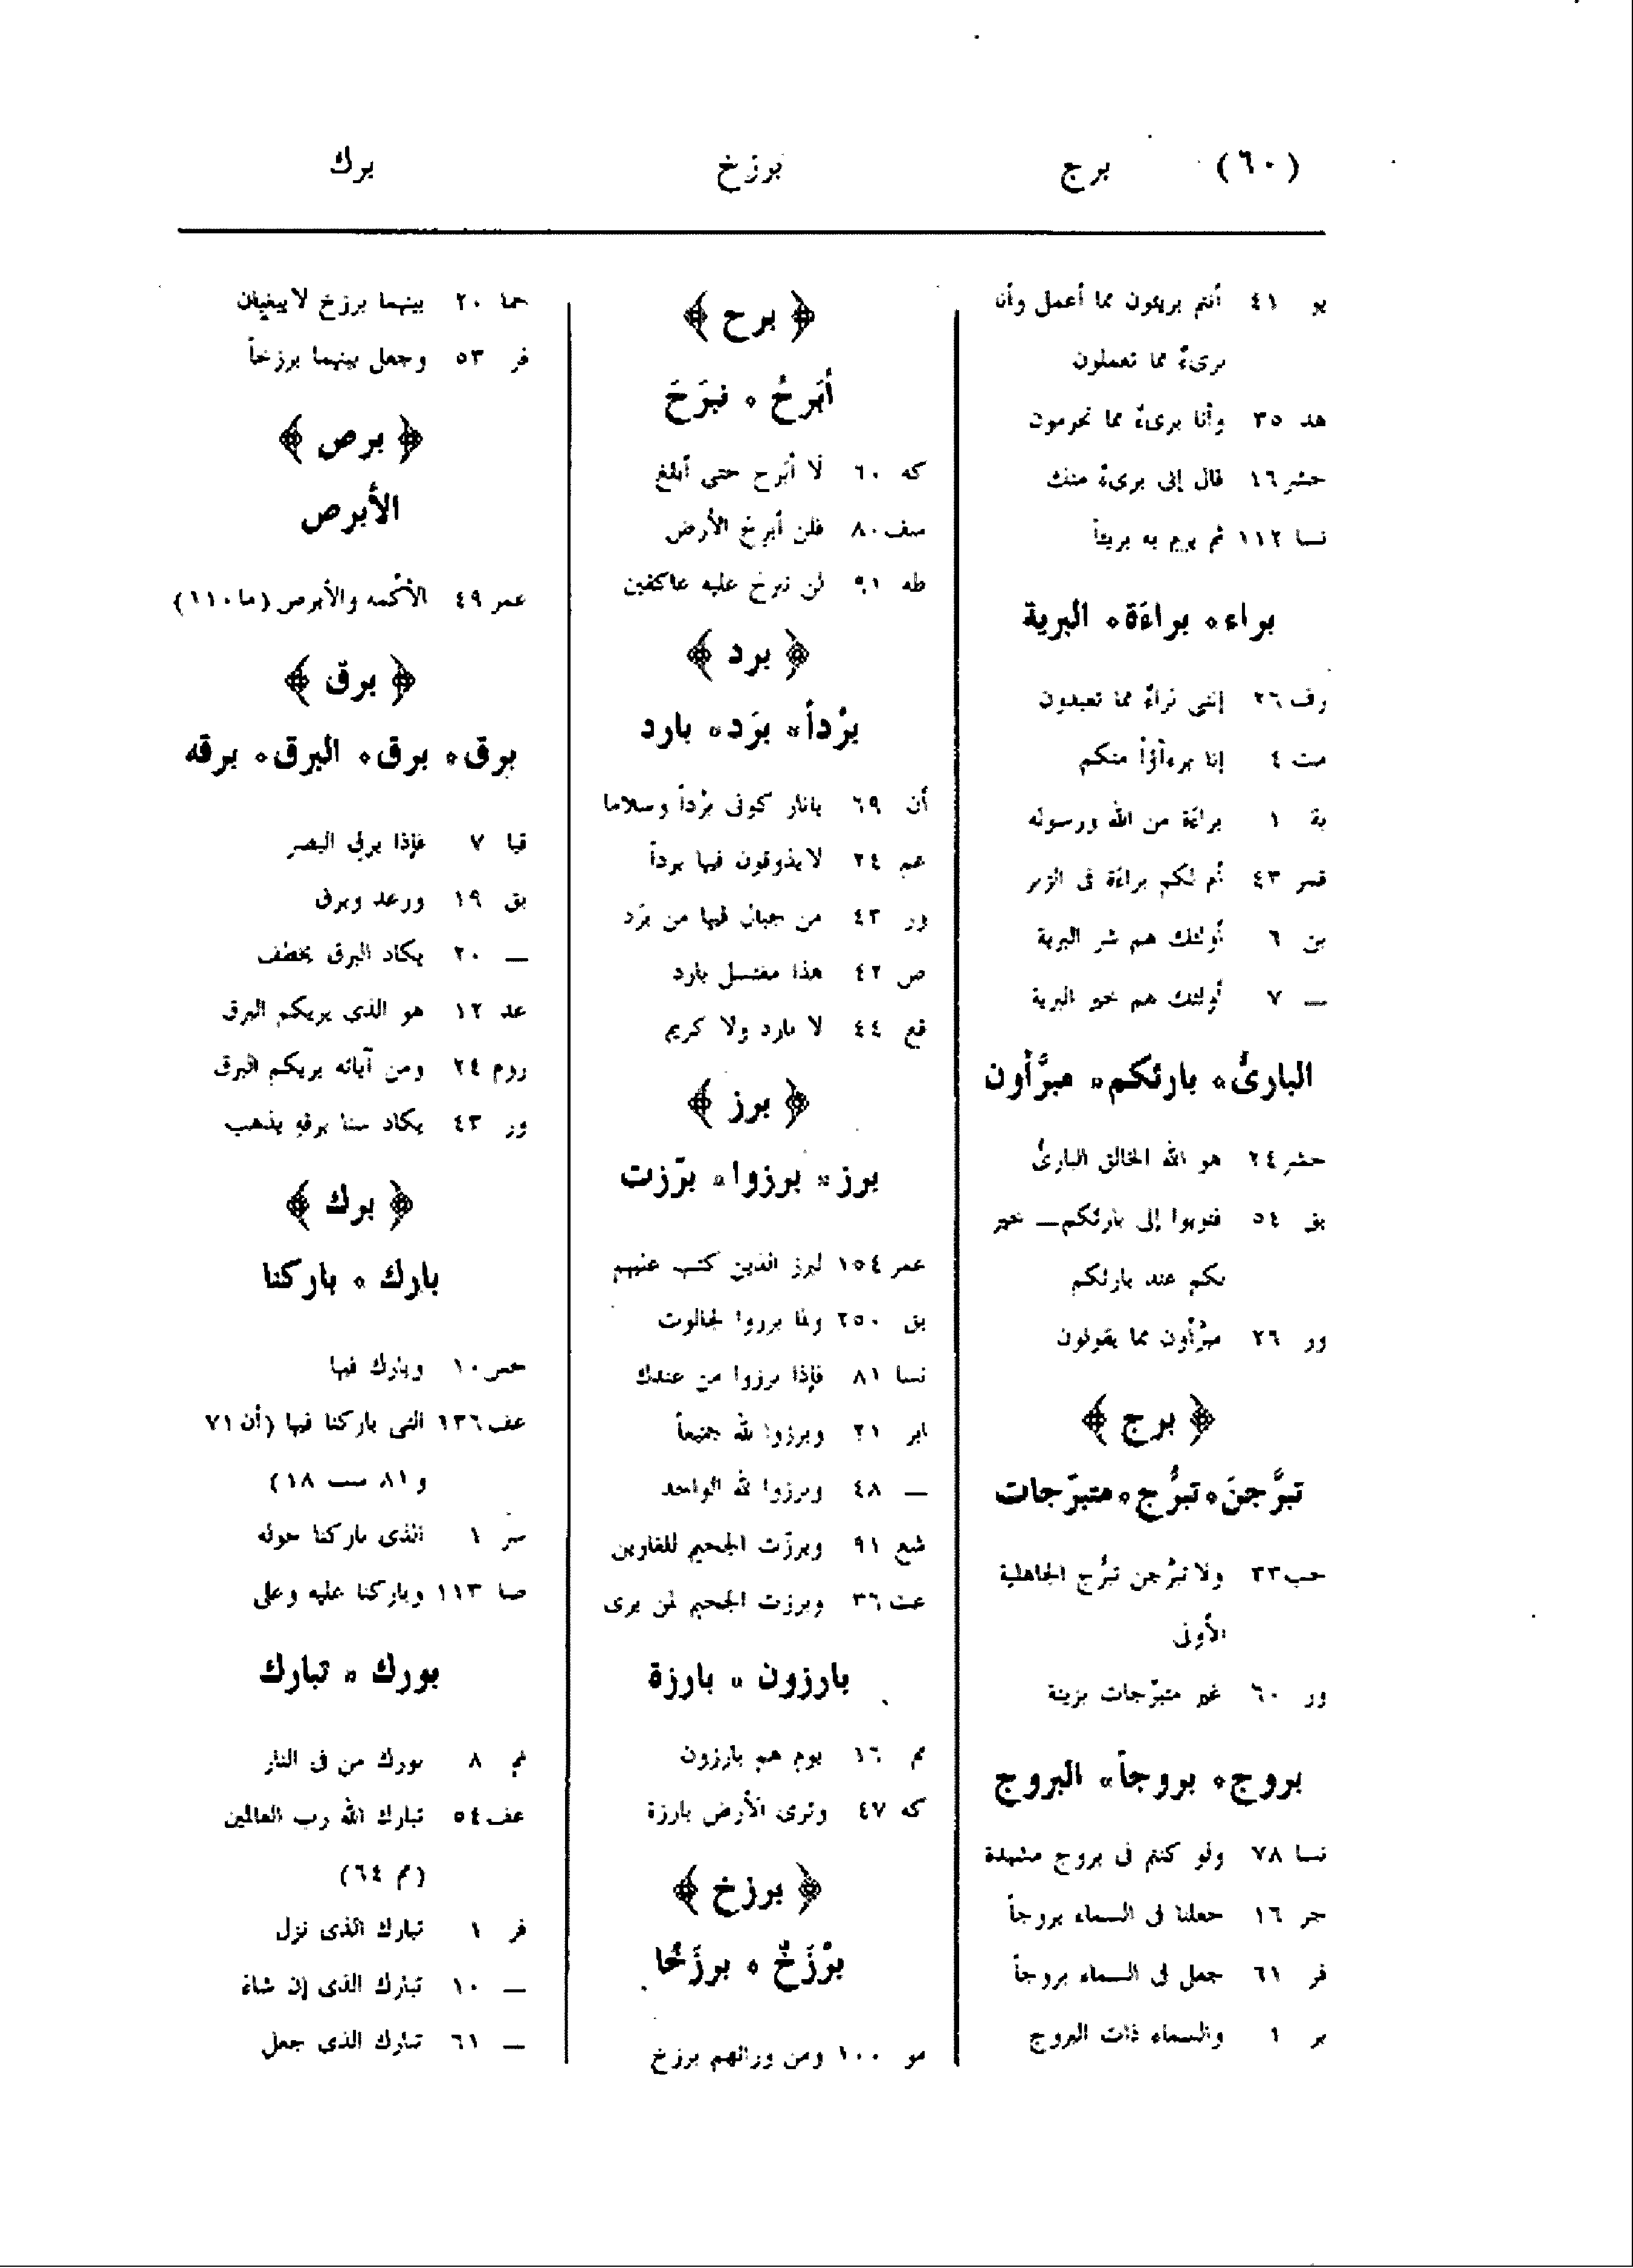 (٦٠) برج برزخ برك
يو ٤١ أنتم بريئون مما أعمل وأنا
برىءٌ مما تعملون
هد ٣٥ وأنا برىءٌ مما تجرمون
حشر ١٦ قال إنى برىءٌ منك
نسا ١١٢ ثم يرم به بريئاً
براء ٭ براءَة ٭ البرية
رف ٢٦ إننى بَراءٌ مما تعبدون
مت ٤ إنا برءآؤا منكم
بة ١ براءَة من الله ورسوله
قمر ٤٣ أم لكم براءَة فى الزبر
بن ٦ أولئك هم شر البرية
— ٧ أولئك هم خير البرية
البارئُ ٭ بارئكم ٭ مبرَّأون
حشر ٢٤ هو الله الخالق البارئُ
بق ٥٤ فتوبوا إلى بارئكم — خير
لكم عند بارئكم
ور ٢٦ مبرَّأون مما يقولون
﴿ برج ﴾
تبرَّجنَ ٭ تبرُّج ٭ متبرّجات
حب ٣٣ ولا تبرَّجن تبرُّج الجاهلية
الأولى
ور ٦٠ غير متبرّجات بزينة
بروج ٭ بروجاً ٭ البروج
نسا ٧٨ ولو كنتم فى بروج مشيدة
جر ١٦ جعلنا فى السماء بروجاً
فر ٦١ جعل فى السماء بروجاً
بر ١ والسماء ذات البروج
﴿ برح ﴾
أبَرحُ ٭ نبرَحَ
كه ٦٠ لَا أبَرح حتى أبلغ
سف ٨٠ فلن أبرحَ الأرض
طه ٩١ لن نبرحَ عليه عاكفين
﴿ برد ﴾
برْداً ٭ برَد ٭ بارد
أن ٦٩ يانار كونى برْداً وسلاما
عم ٢٤ لا يذوقون فيها برداً
ور ٤٣ من جبال فيها من برَد
ص ٤٢ هذا مغتسل بارد
قع ٤٤ لا بارد ولا كريم
﴿ برز ﴾
برز ٭ برزوا ٭ برّزت
عمر ١٥٤ لبرز الذين كتب عليهم
بق ٢٥٠ ولما برزوا لجالوت
نسا ٨١ فإذا برزوا من عندك
ابر ٢١ وبرزوا لله جميعاً
— ٤٨ وبرزوا لله الواحد
شع ٩١ وبرزّت الجحيم للغاوين
عت ٣٦ وبرزت الجحيم لمن يرى
بارزون ٭ بارزة
مم ١٦ يوم هم بارزون
كه ٤٧ وترى الأرض بارزة
﴿ برزخ ﴾
برْزَخٌ ٭ برزَخًا
مو ١٠٠ ومن ورائهم برزخ
حما ٢٠ بينهما برزخ لا يبغيان
فر ٥٣ وجعل بينهما برزخاً
﴿ برص ﴾
الأبرص
عمر ٤٩ الأكْمه والأبرص (ما ١١٠)
﴿ برق ﴾
برِق ٭ برق ٭ البرق ٭ برقه
قيا ٧ فإذا برِق البصر
بق ١٩ ورعد وبرق
— ٢٠ يكاد البرق يخطف
عد ١٢ هو الذى يريكم البرق
روم ٢٤ ومن آياته يريكم البرق
ور ٤٣ يكاد سنا برقهِ يذهب
﴿ برك ﴾
بارك ٭ باركنا
حمس ١٠ وبارك فيها
عف ١٣٦ التى باركنا فيها (أن ٧١
و ٨١ سب ١٨)
سر ١ الذى باركنا حوله
صا ١١٣ وباركنا عليه وعلى
بورك ٭ تبارك
نم ٨ بورك من فى النار
عف ٥٤ تبارك الله رب العالمين
(مم ٦٤)
فر ١ تبارك الذى نزل
— ١٠ تبارك الذى إن شاءَ
— ٦١ تبارك الذى جعل